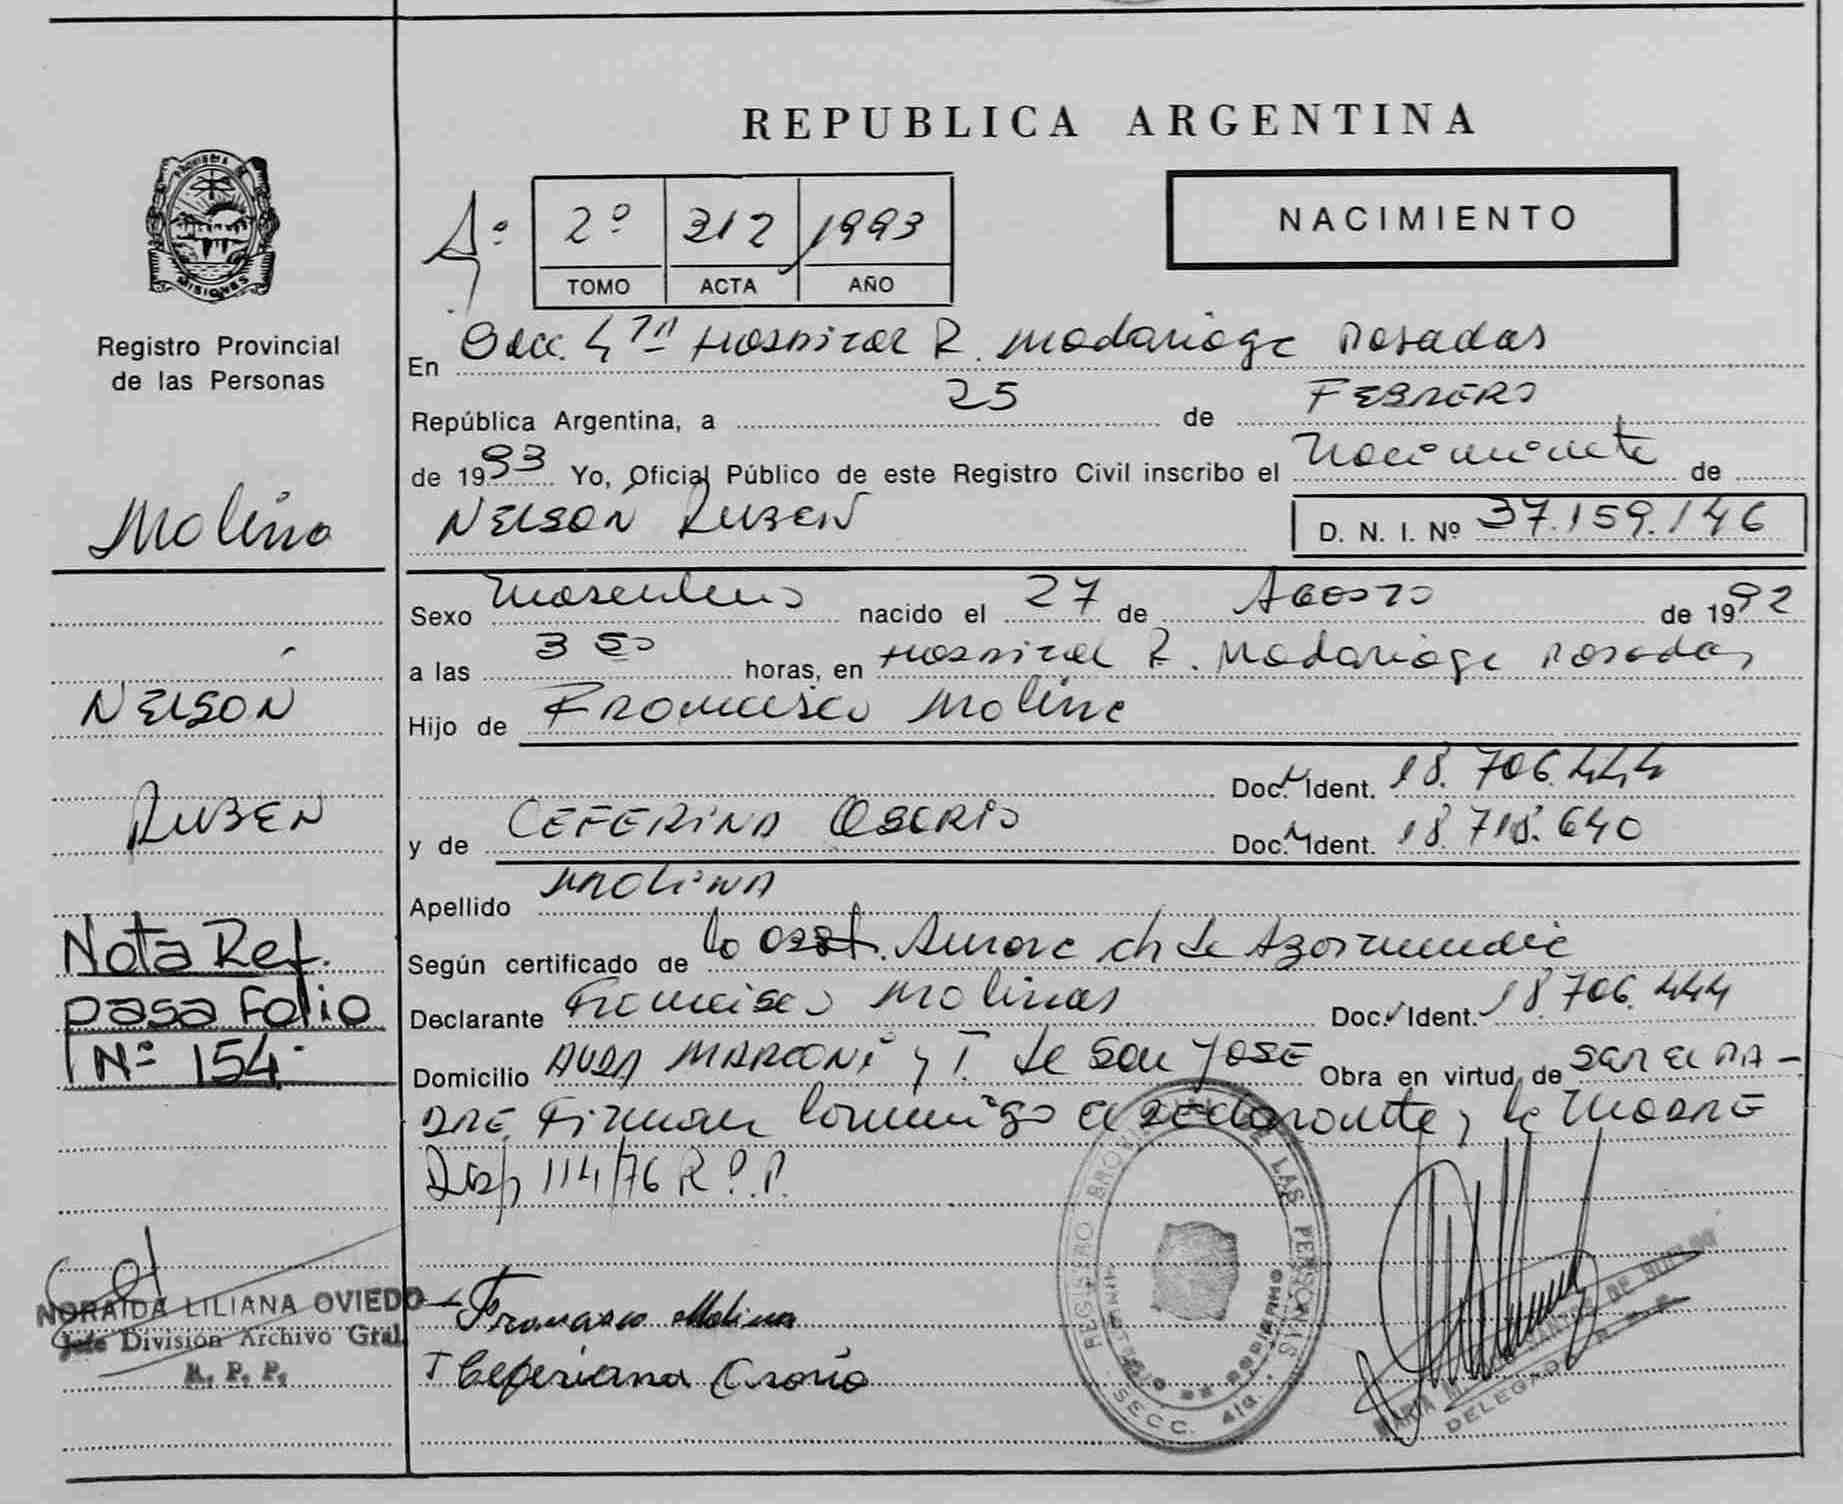 REPUBLICA ARGENTINA
PROVINCIA DE
MISIONES
Registro Provincial
de las Personas
Aº
2º 312 1993
TOMO ACTA AÑO
NACIMIENTO
En Secc. 4ta Hospital R. Madariaga Posadas
República Argentina, a 25 de FEBRERO
de 1993 Yo, Oficial Público de este Registro Civil inscribo el Nacimiento de
NELSON RUBEN D. N. I. Nº 37.159.146
Sexo Masculino nacido el 27 de Agosto de 1992
a las 3 50 horas, en Hospital R. Madariaga Posadas
Hijo de Francisco Molina
Doc. M Ident. 18.706.444
y de CEFERINA OSORIO Doc. M Ident. 18.718.640
Apellido MOLINA
Según certificado de la obst. Aurora ch de
Declarante Francisco Molinas Doc. Ident. 18.706.444
Domicilio AVDA MARCONI y T. de San JOSE Obra en virtud de SER EL PA-
DRE Firman conmigo el declarante y la MADRE
Disp 114/76 R.P.P.
Francisco Molina
Ceferiana Osorio
Molina
NELSON
RUBEN
Nota Ref.
pasa Folio
Nº 154
NORAIDA LILIANA OVIEDO
Jefe División Archivo Gral.
R. P. P.
REGISTRO PROVINCIAL DE LAS PERSONAS
SECC. 4ta
MARIA
DELEGADO R. P. P.